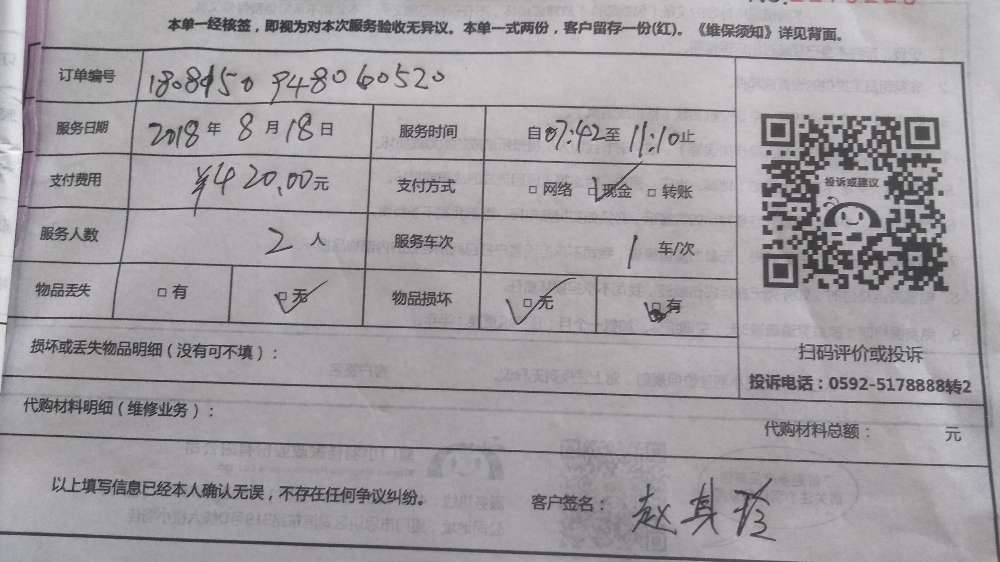 本单一经核签，即视为对本次服务验收无异议。本单一式两份，客户留存一份(红)。《维保须知》详见背面。
订单编号 180815094806052​0
服务日期 2018年8月18日 服务时间 自07:42至11:10止
支付费用 ¥420.00元 支付方式 □网络 ☑现金 □转账
投诉或建议
服务人数 2人 服务车次 1车/次
物品丢失 □有 ☑无 物品损坏 ☑无 □有
扫码评价或投诉
损坏或丢失物品明细（没有可不填）：
投诉电话：0592-5178888转2
代购材料明细（维修业务）：
代购材料总额： 元
以上填写信息已经本人确认无误，不存在任何争议纠纷。 客户签名：赵其珍